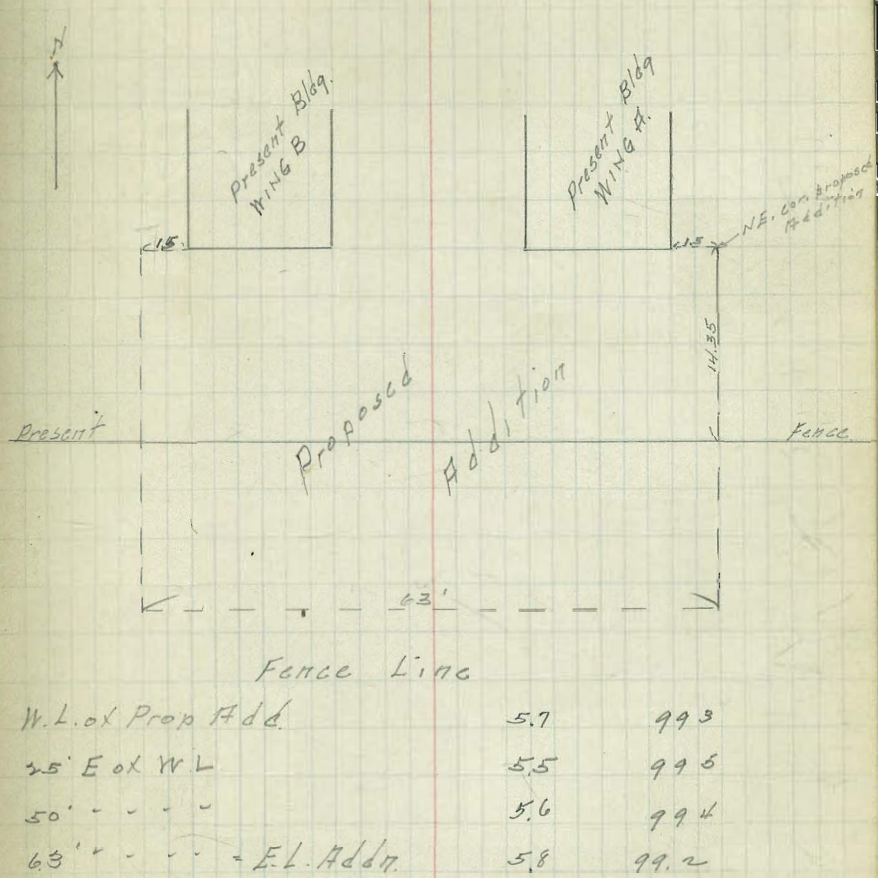 N
Present Bldg.
WING B
Present Bldg
WING A.
NE. cor. proposed
Addition
15
15
14.35
Proposed Addition
Present Fence
63'
Fence Line
W.L. of Prop Add. 5.7 99 3
25' E of W L 5.5 99 5
50' " " " " 5.6 99 4
63' " " " " = E.L. Addn. 5.8 99.2